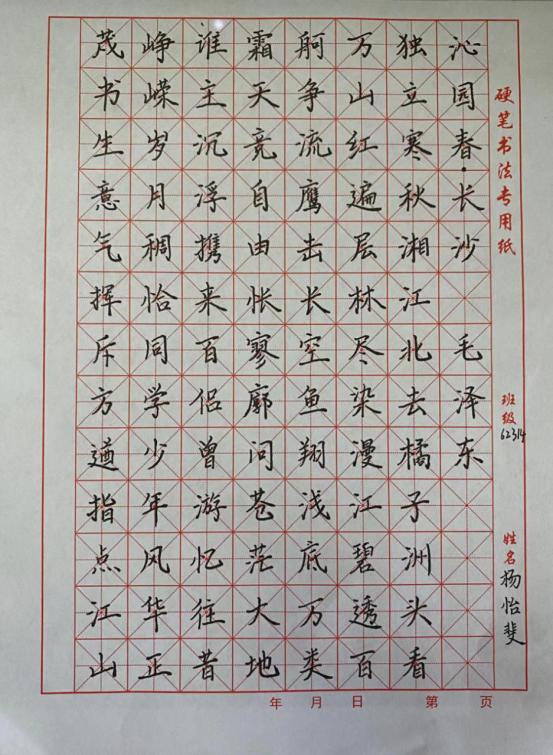 硬笔书法专用纸
班级 62314
姓名 杨怡斐
沁园春·长沙 毛泽东
独立寒秋湘江北去橘子洲头看
万山红遍层林尽染漫江碧透百
舸争流鹰击长空鱼翔浅底万类
霜天竞自由怅寥廓问苍茫大地
谁主沉浮携来百侣曾游忆往昔
峥嵘岁月稠恰同学少年风华正
茂书生意气挥斥方遒指点江山
年 月 日 第 页